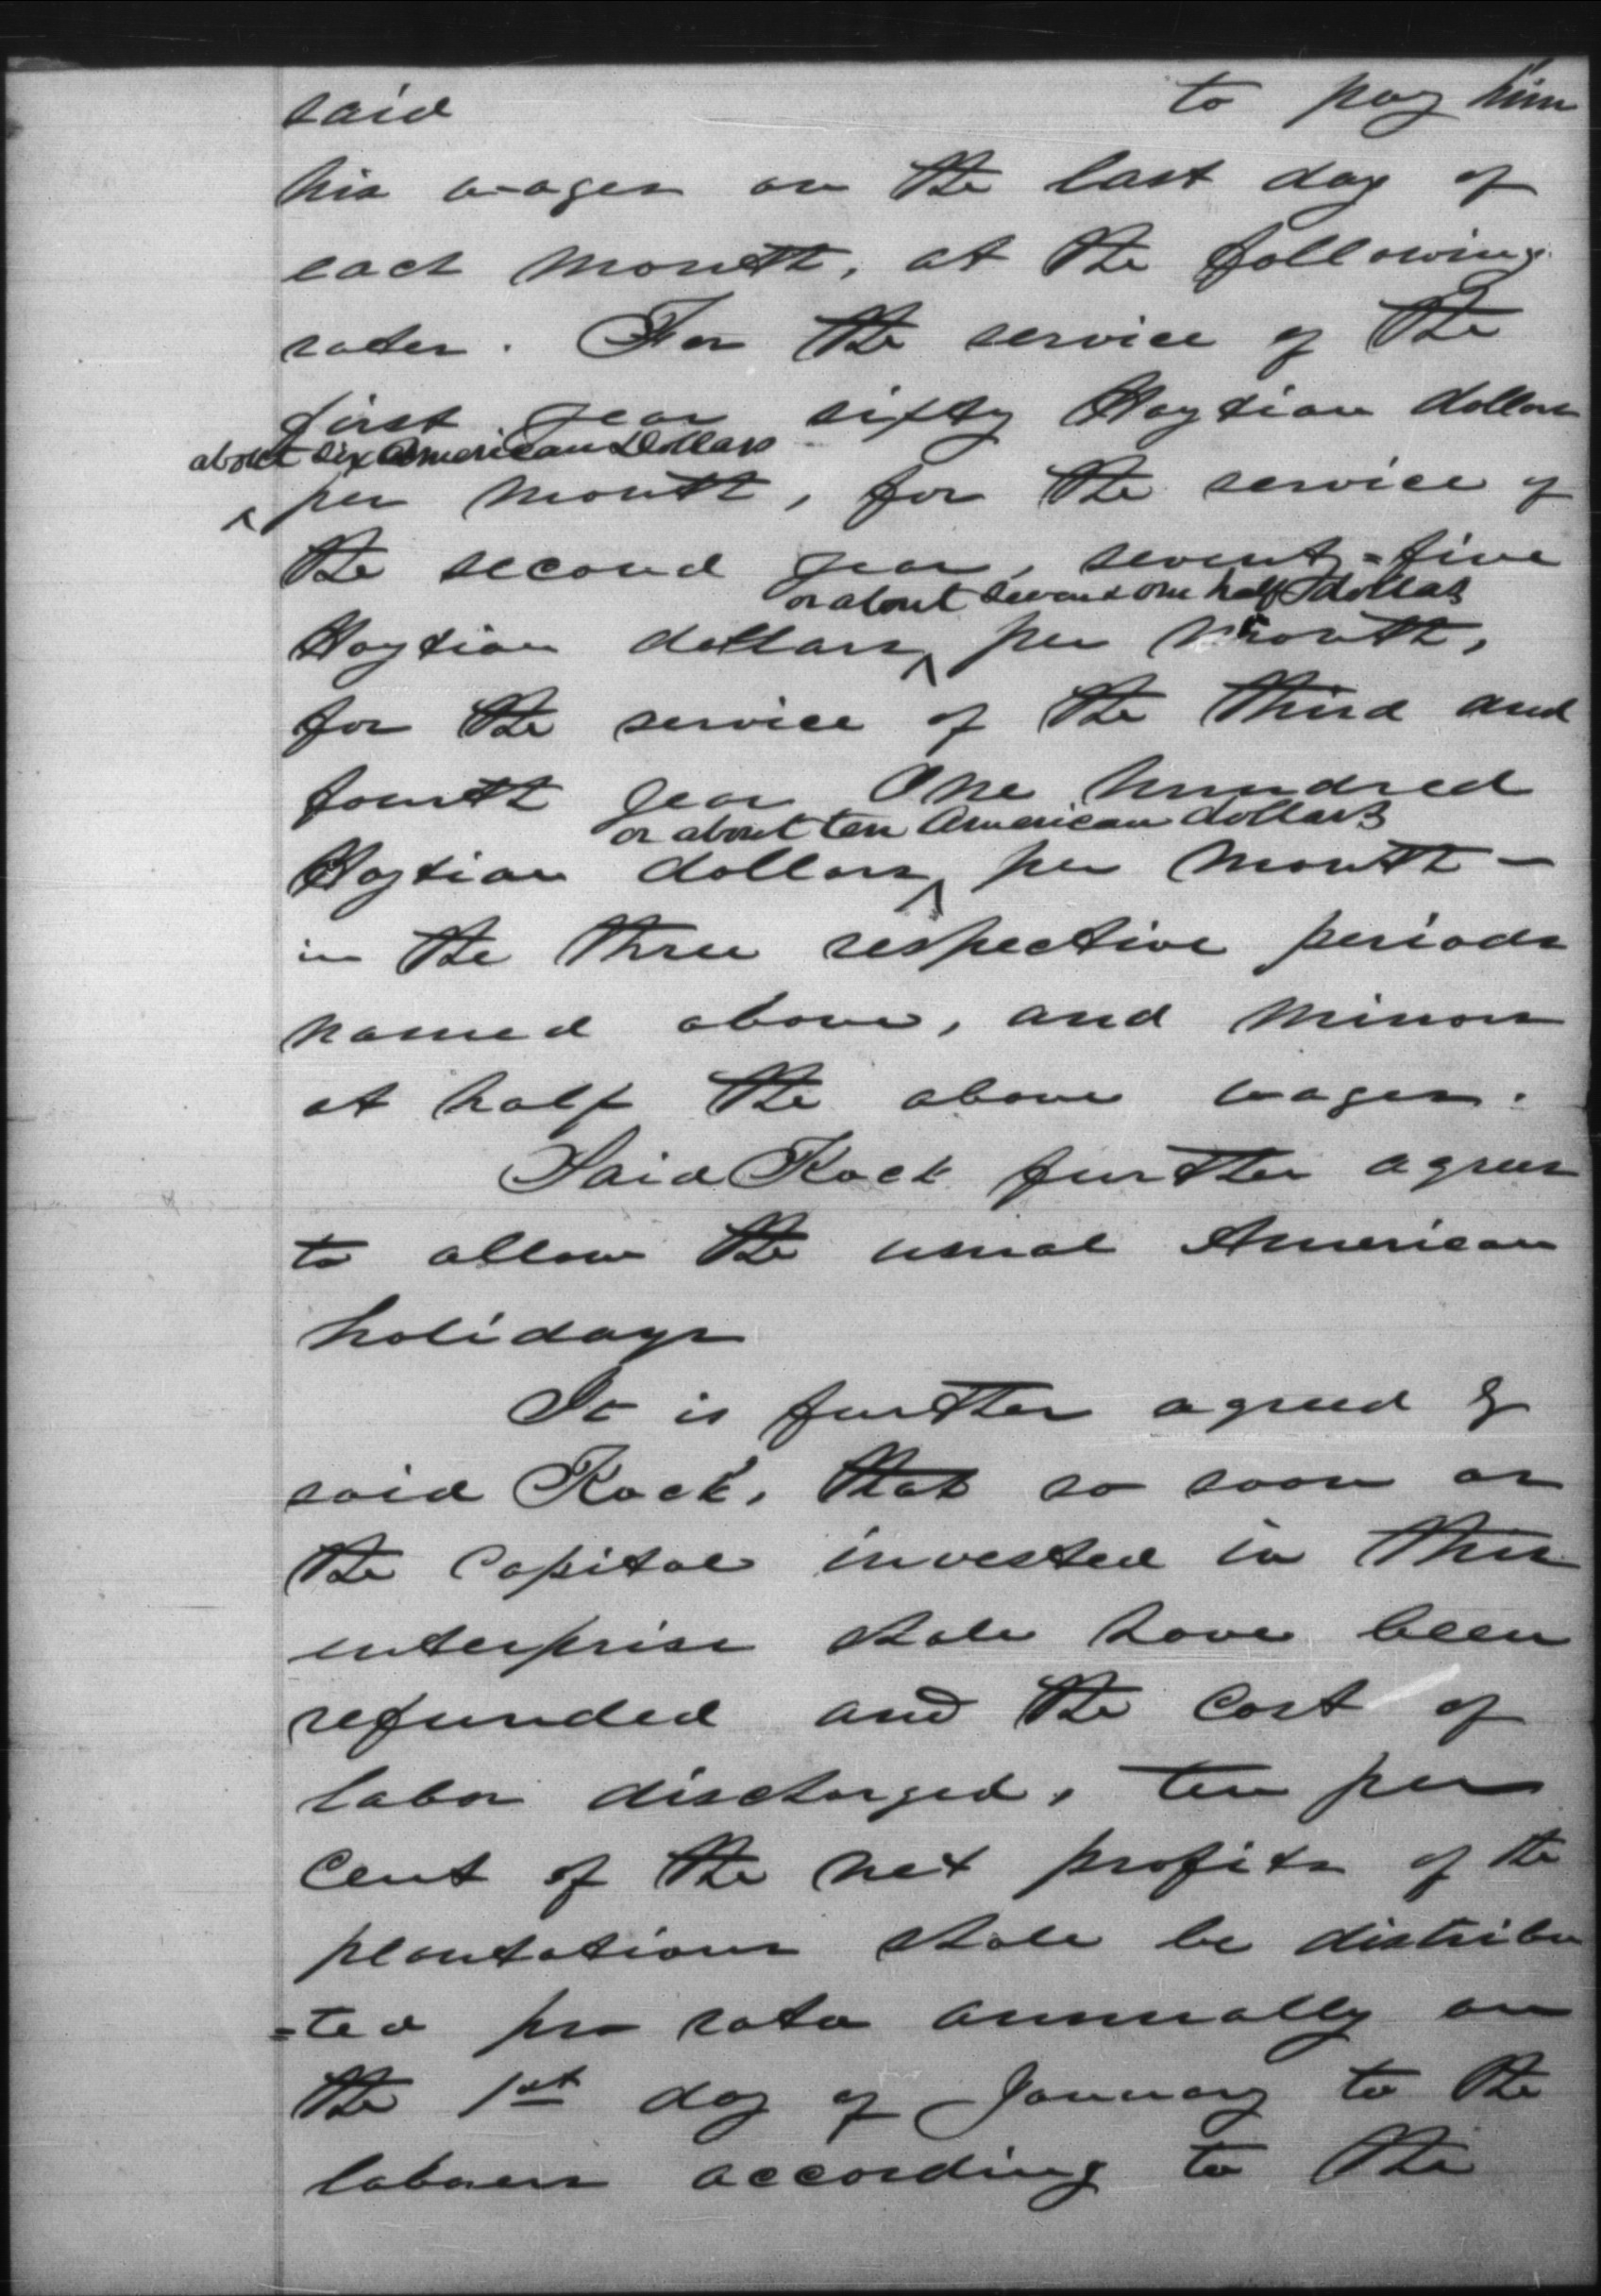 said to pay him
his wages on the last day of
each month, at the following
rates. For the service of the
first year sixty Haytian dollars
about six American Dollars
^ per month, for the service of
the second year, seventy=five
or about seven & one half dollars
Haytian dollars ^ per month,
for the service of the third and
fourth year One hundred
or about ten American dollars
Haytian dollars ^ per month –
in the three respective periods
named above, and minors
at half the above wages.
Said Kock further agrees
to allow the usual American
holidays
It is further agreed by
said Kock, that so soon as
the Capital invested in this
enterprise shall have been
refunded and the Cost of
labor discharged, ten per
Cent of the net profits of the
plantations shall be distribu
=ted pro rata annually on
the 1st day of January to the
laborers according to the